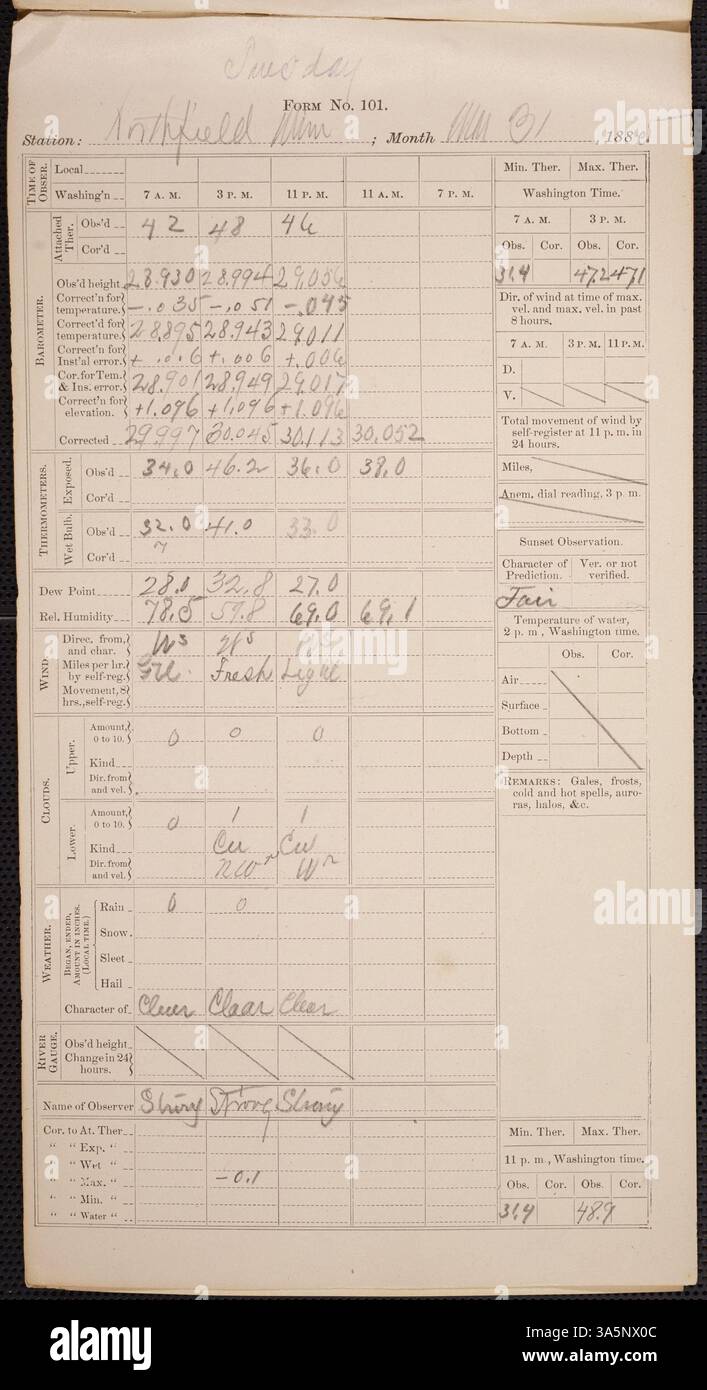 Tuesday
FORM NO. 101.
Station: Northfield Minn ; Month Mar 31 , 188
TIME OF OBSER.
Local
Washing'n 7 A. M. 3 P. M. 11 P. M. 11 A. M. 7 P. M.
BAROMETER.
Attached Ther.
Obs'd 42 48 46
Cor'd
Obs'd height 28.930 28.994 29.056
Correct'n for temperature. -.035 -.051 -.045
Correct'd for temperature. 28.895 28.943 29.011
Correct'n for Inst'al error. +.006 +.006 +.006
Cor. for Tem. & Ins. error. 28.901 28.949 29.017
Correct'n for elevation. +1.096 +1.096 +1.096
Corrected 29.997 30.045 30.113 30.052
THERMOMETERS.
Exposed.
Obs'd 34.0 46.2 36.0 38.0
Cor'd
Wet Bulb.
Obs'd 32.0 41.0 33.0
Cor'd
Dew Point 28.0 32.8 27.0
Rel. Humidity 78.5 59.8 69.0 69.1
WIND
Direc. from, and char. W S
Miles per hr. by self-reg. Fresh Light
Movement, 8 hrs., self-reg.
CLOUDS.
Upper.
Amount, 0 to 10. 0 0 0
Kind
Dir. from and vel.
Lower.
Amount, 0 to 10. 0 1 1
Kind Cu Cu
Dir. from and vel. NW W
WEATHER.
BEGAN, ENDED, AMOUNT IN INCHES. (LOCAL TIME.)
Rain 0 0
Snow.
Sleet
Hail
Character of Clear Clear Clear
RIVER GAUGE.
Obs'd height
Change in 24 hours.
Name of Observer Strong Strong Strong
Cor. to At. Ther.
" " Exp. "
" " Wet "
" " Max. " -0.1
" " Min. "
" " Water "
Min. Ther. Max. Ther.
Washington Time.
7 A. M. 3 P. M.
Obs. Cor. Obs. Cor.
31.4 47.2 47.1
Dir. of wind at time of max. vel. and max. vel. in past 8 hours.
7 A. M. 3 P. M. 11 P. M.
D.
V.
Total movement of wind by self-register at 11 p. m. in 24 hours.
Miles,
Anem. dial reading, 3 p. m.
Sunset Observation.
Character of Prediction. Ver. or not verified.
Fair
Temperature of water, 2 p. m., Washington time.
Obs. Cor.
Air
Surface
Bottom
Depth
REMARKS: Gales, frosts, cold and hot spells, auroras, halos, &c.
Min. Ther. Max. Ther.
11 p. m., Washington time.
Obs. Cor. Obs. Cor.
31.4 48.9
alamy
Image ID: 3A5NX0C
www.alamy.com